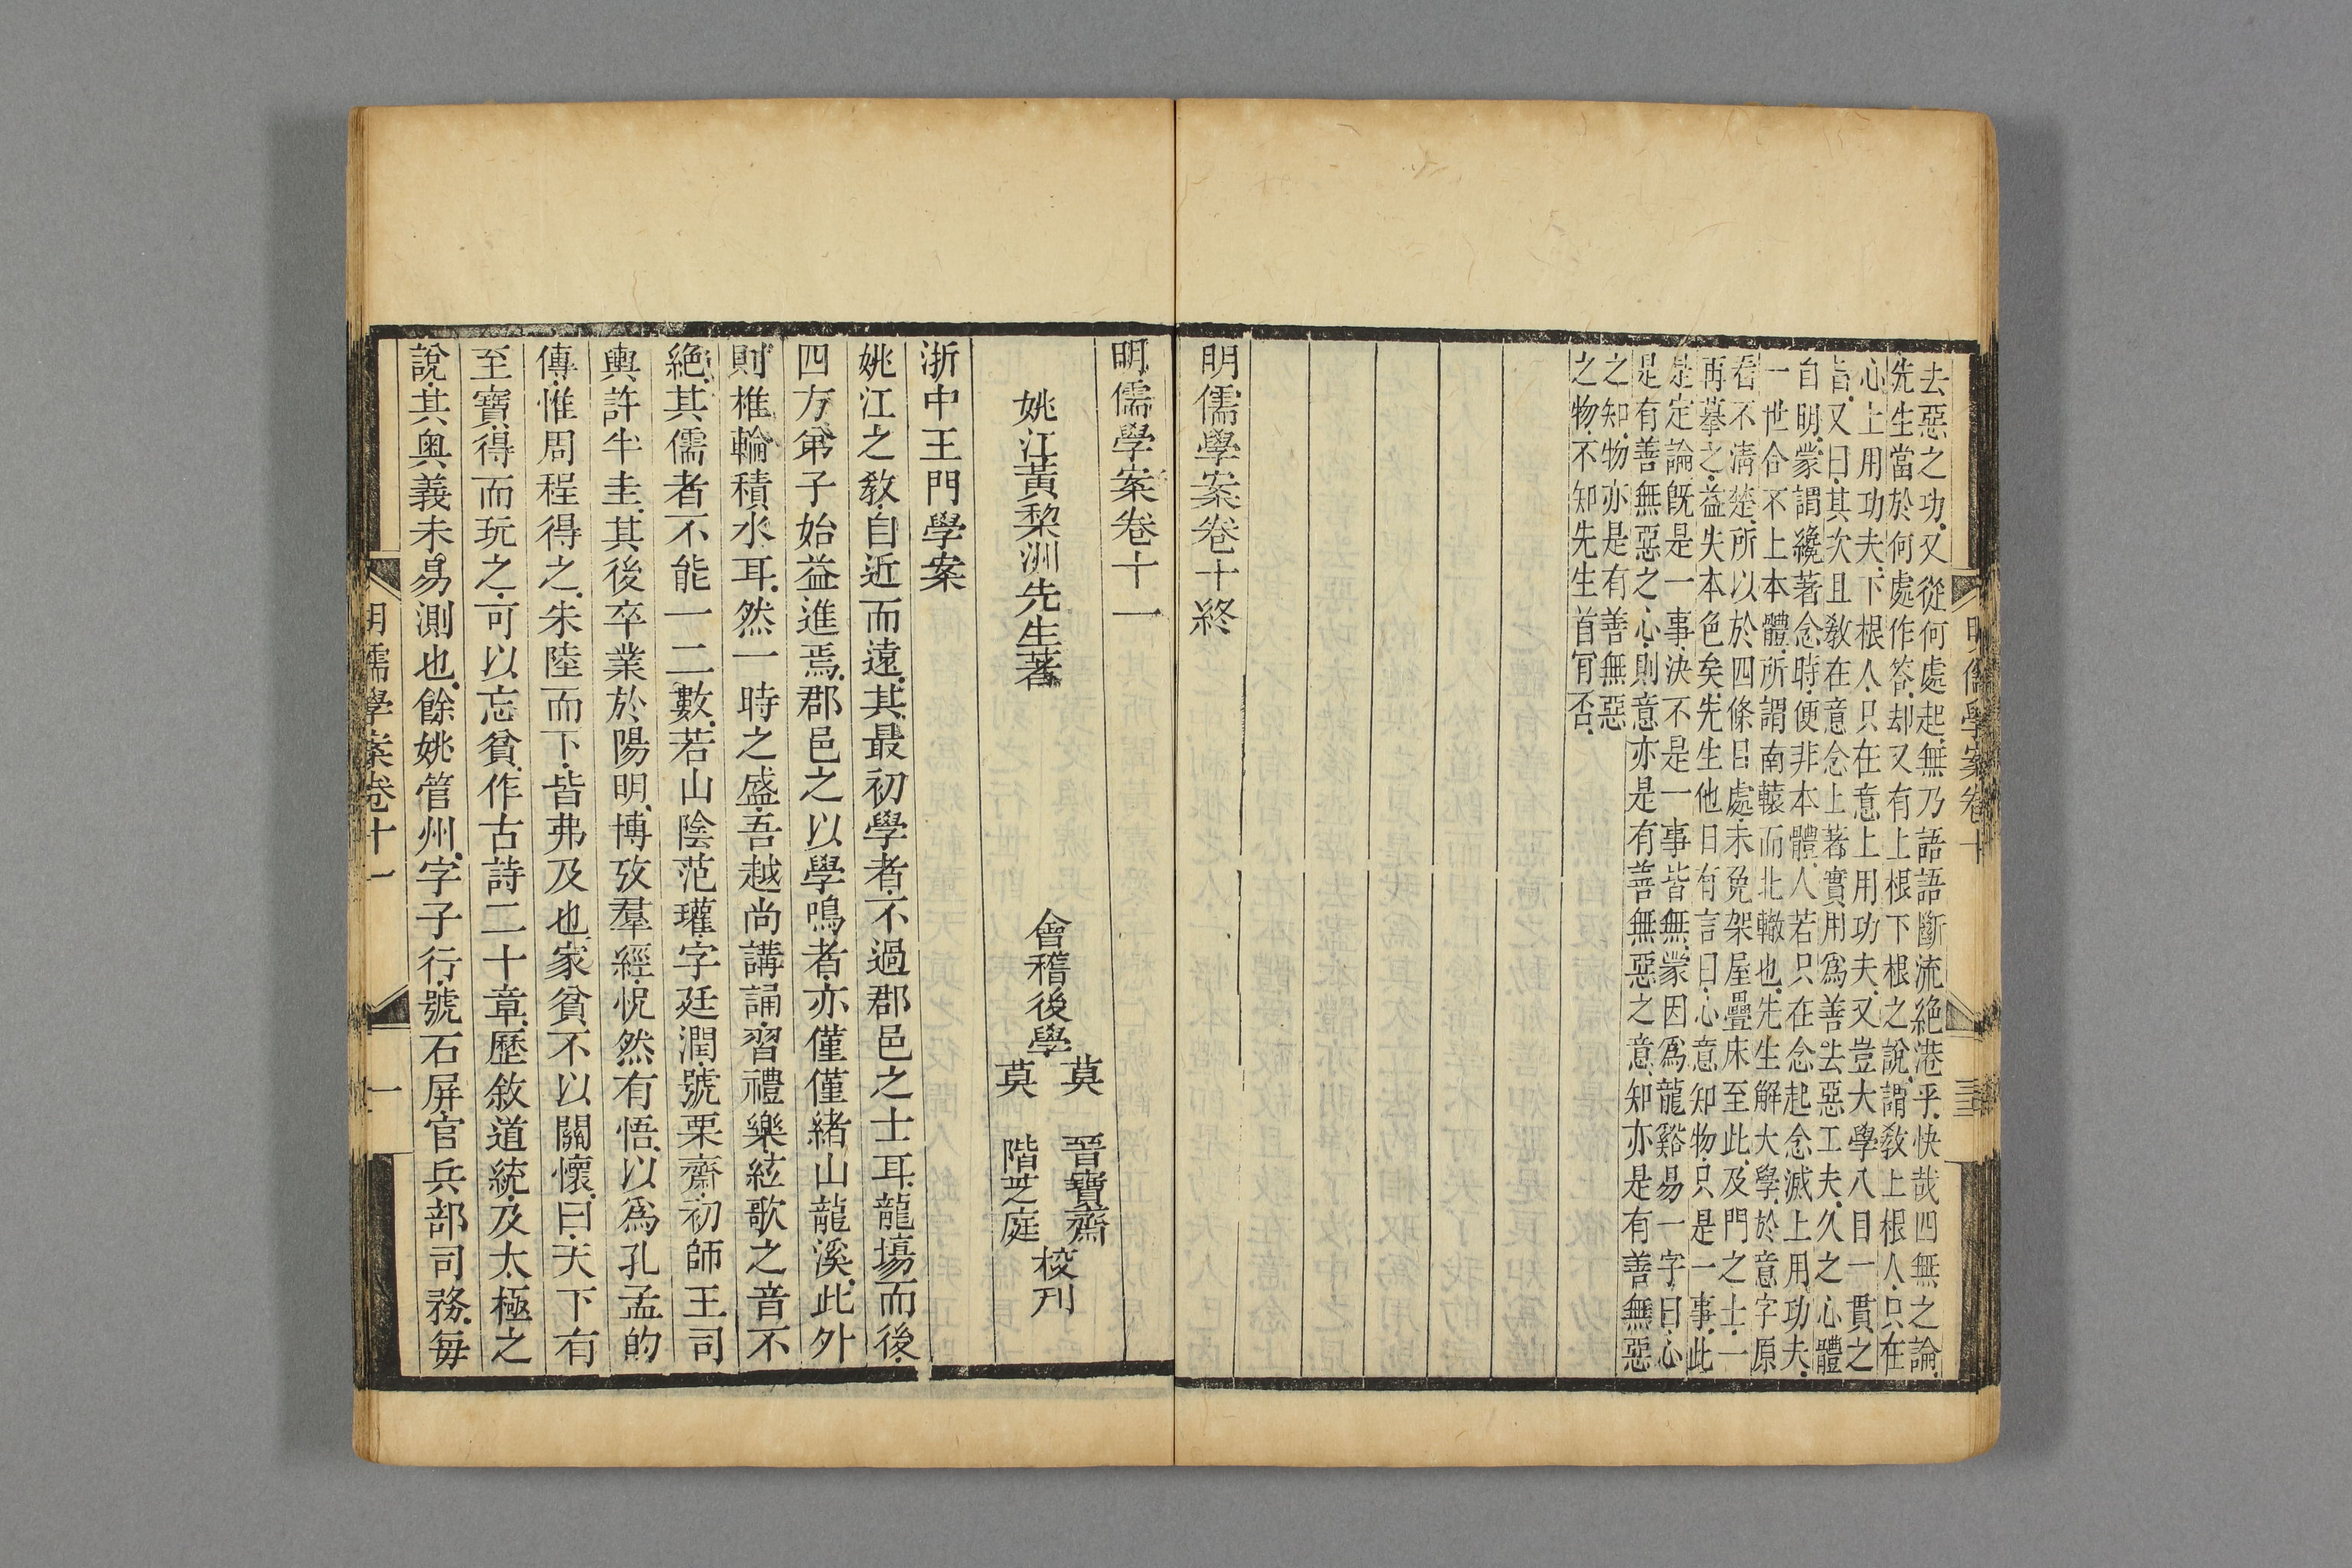 明儒學案卷十
三三
去惡之功又從何處起無乃語語斷流絕港乎快哉四無之論
先生當於何處作答却又有上根下根之說謂敎上根人只在
心上用功夫下根人只在意上用功夫又豈大學八目一貫之
旨又曰其次且敎在意念上著實用爲善去惡工夫久之心體
自明蒙謂纔著念時便非本體人若只在念起念滅上用功夫
一世合不上本體所謂南轅而北轍也先生解大學於意字原
看不清楚所以於四條目處未免架屋疊床至此及門之士一
再摹之益失本色矣先生他日有言曰心意知物只是一事此
是定論旣是一事決不是一事皆無蒙因爲龍谿易一字曰心
是有善無惡之心則意亦是有善無惡之意知亦是有善無惡
之知物亦是有善無惡
之物不知先生首肎否
明儒學案卷十終
明儒學案卷十一
姚江黃棃洲先生著
會稽後學
莫晉寶齋
莫階芝庭
校刋
浙中王門學案
姚江之敎自近而遠其最初學者不過郡邑之士耳龍塲而後
四方弟子始益進焉郡邑之以學鳴者亦僅僅緒山龍溪此外
則椎輪積水耳然一時之盛吾越尚講誦習禮樂絃歌之音不
絕其儒者不能一二數若山陰范瓘字廷潤號栗齋初師王司
輿許半圭其後卒業於陽明博攷羣經怳然有悟以爲孔孟的
傳惟周程得之朱陸而下皆弗及也家貧不以關懷曰天下有
至寶得而玩之可以忘貧作古詩二十章歷敘道統及太極之
說其奥義未易測也餘姚管州字子行號石屏官兵部司務每
明儒學案卷十一
一